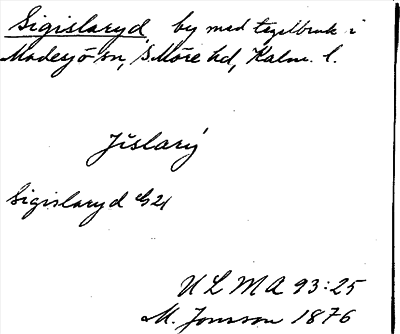 Sigislaryd, by med tegelbruk i
Madesjö sn, S. Möre hd, Kalm. l.
Jíslarý
Sigislaryd G21
ULMA 93:25
M. Jonsson 1876